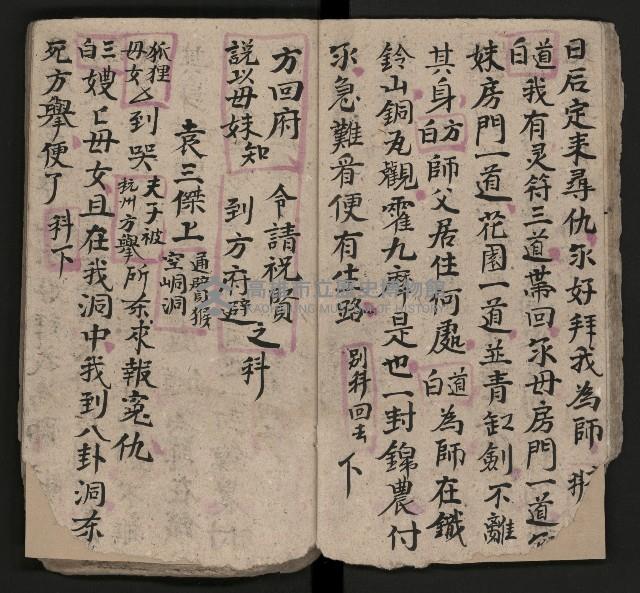 日后定来尋仇尔好拜我為師 科
道白 我有灵符三道带回尔母房門一道
妹房門一道花園一道並青缸劍不離
其身 方白 師父居住何處 道白 為師在鐵
鈴山銅瓦觀霍九齊是也一封錦農付
尔急難看便有仕路 別科回去 下
方回府 令請祝賢
說以母妹知 到方府避之科
袁三傑上 通臂猴 空峒洞
狐狸母女 上 到哭 夫子被杭州方舉 所杀求報寃仇
三白 嫂亡母女且在我洞中我到八卦洞杀
死方舉便了 科下
高雄市立歷史博物館
KAOHSIUNG MUSEUM OF HISTORY